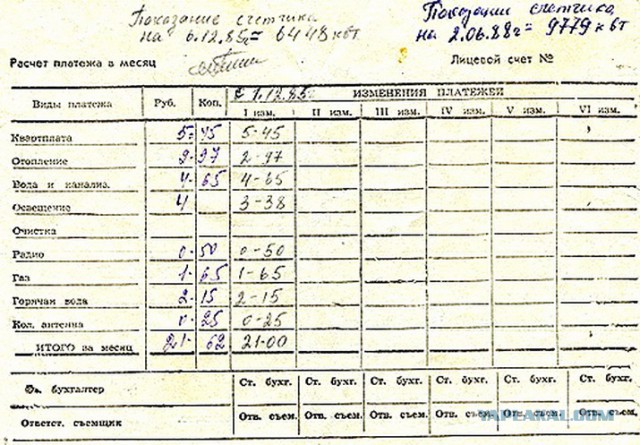 Показание счетчика
на 6.12.85г = 6448 квт
Показании счетчика
на 2.06.88г = 9779 квт
Расчет платежа в месяц
Лицевой счет №
Виды платежа Руб. Коп. С 1.12.85. ИЗМЕНЕНИЯ ПЛАТЕЖЕЙ
I изм. II изм. III изм. IV изм. V изм. VI изм.
Квартплата 5-45 5-45
Отопление 2-97 2-97
Вода и канализ. 4-65 4-65
Освещение 4 3-38
Очистка
Радио 0-50 0-50
Газ 1-65 1-65
Горячая вода 2-15 2-15
Кол. антенна 0-25 0-25
ИТОГО за месяц 21-62 21-00
Ст. бухг. Ст. бухг. Ст. бухг. Ст. бухг. Ст. бухг. Ст. бухг.
Гл. бухгалтер
Ответст. съемщик Отв. съем. Отв. съем. Отв. съем. Отв. съем. Отв. съем. Отв. съем.
YAPLAKAL.COM